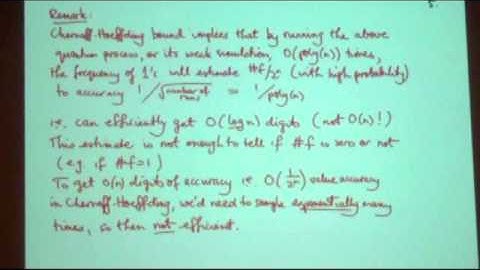 Remark:
Chernoff-Hoeffding bound implies that by running the above
quantum process, or its weak simulation, O(poly(n)) times,
the frequency of 1's will estimate #f/2ⁿ (with high probability)
to accuracy 1/√(number of runs) = 1/poly(n)
i.e. can efficiently get O(log n) digits (not O(n)!)
This estimate is not enough to tell if #f is zero or not
(e.g. if #f=1)
To get O(n) digits of accuracy i.e. O(1/2ⁿ) value accuracy
in Chernoff-Hoeffding, we'd need to sample exponentially many
times, so then not efficient.